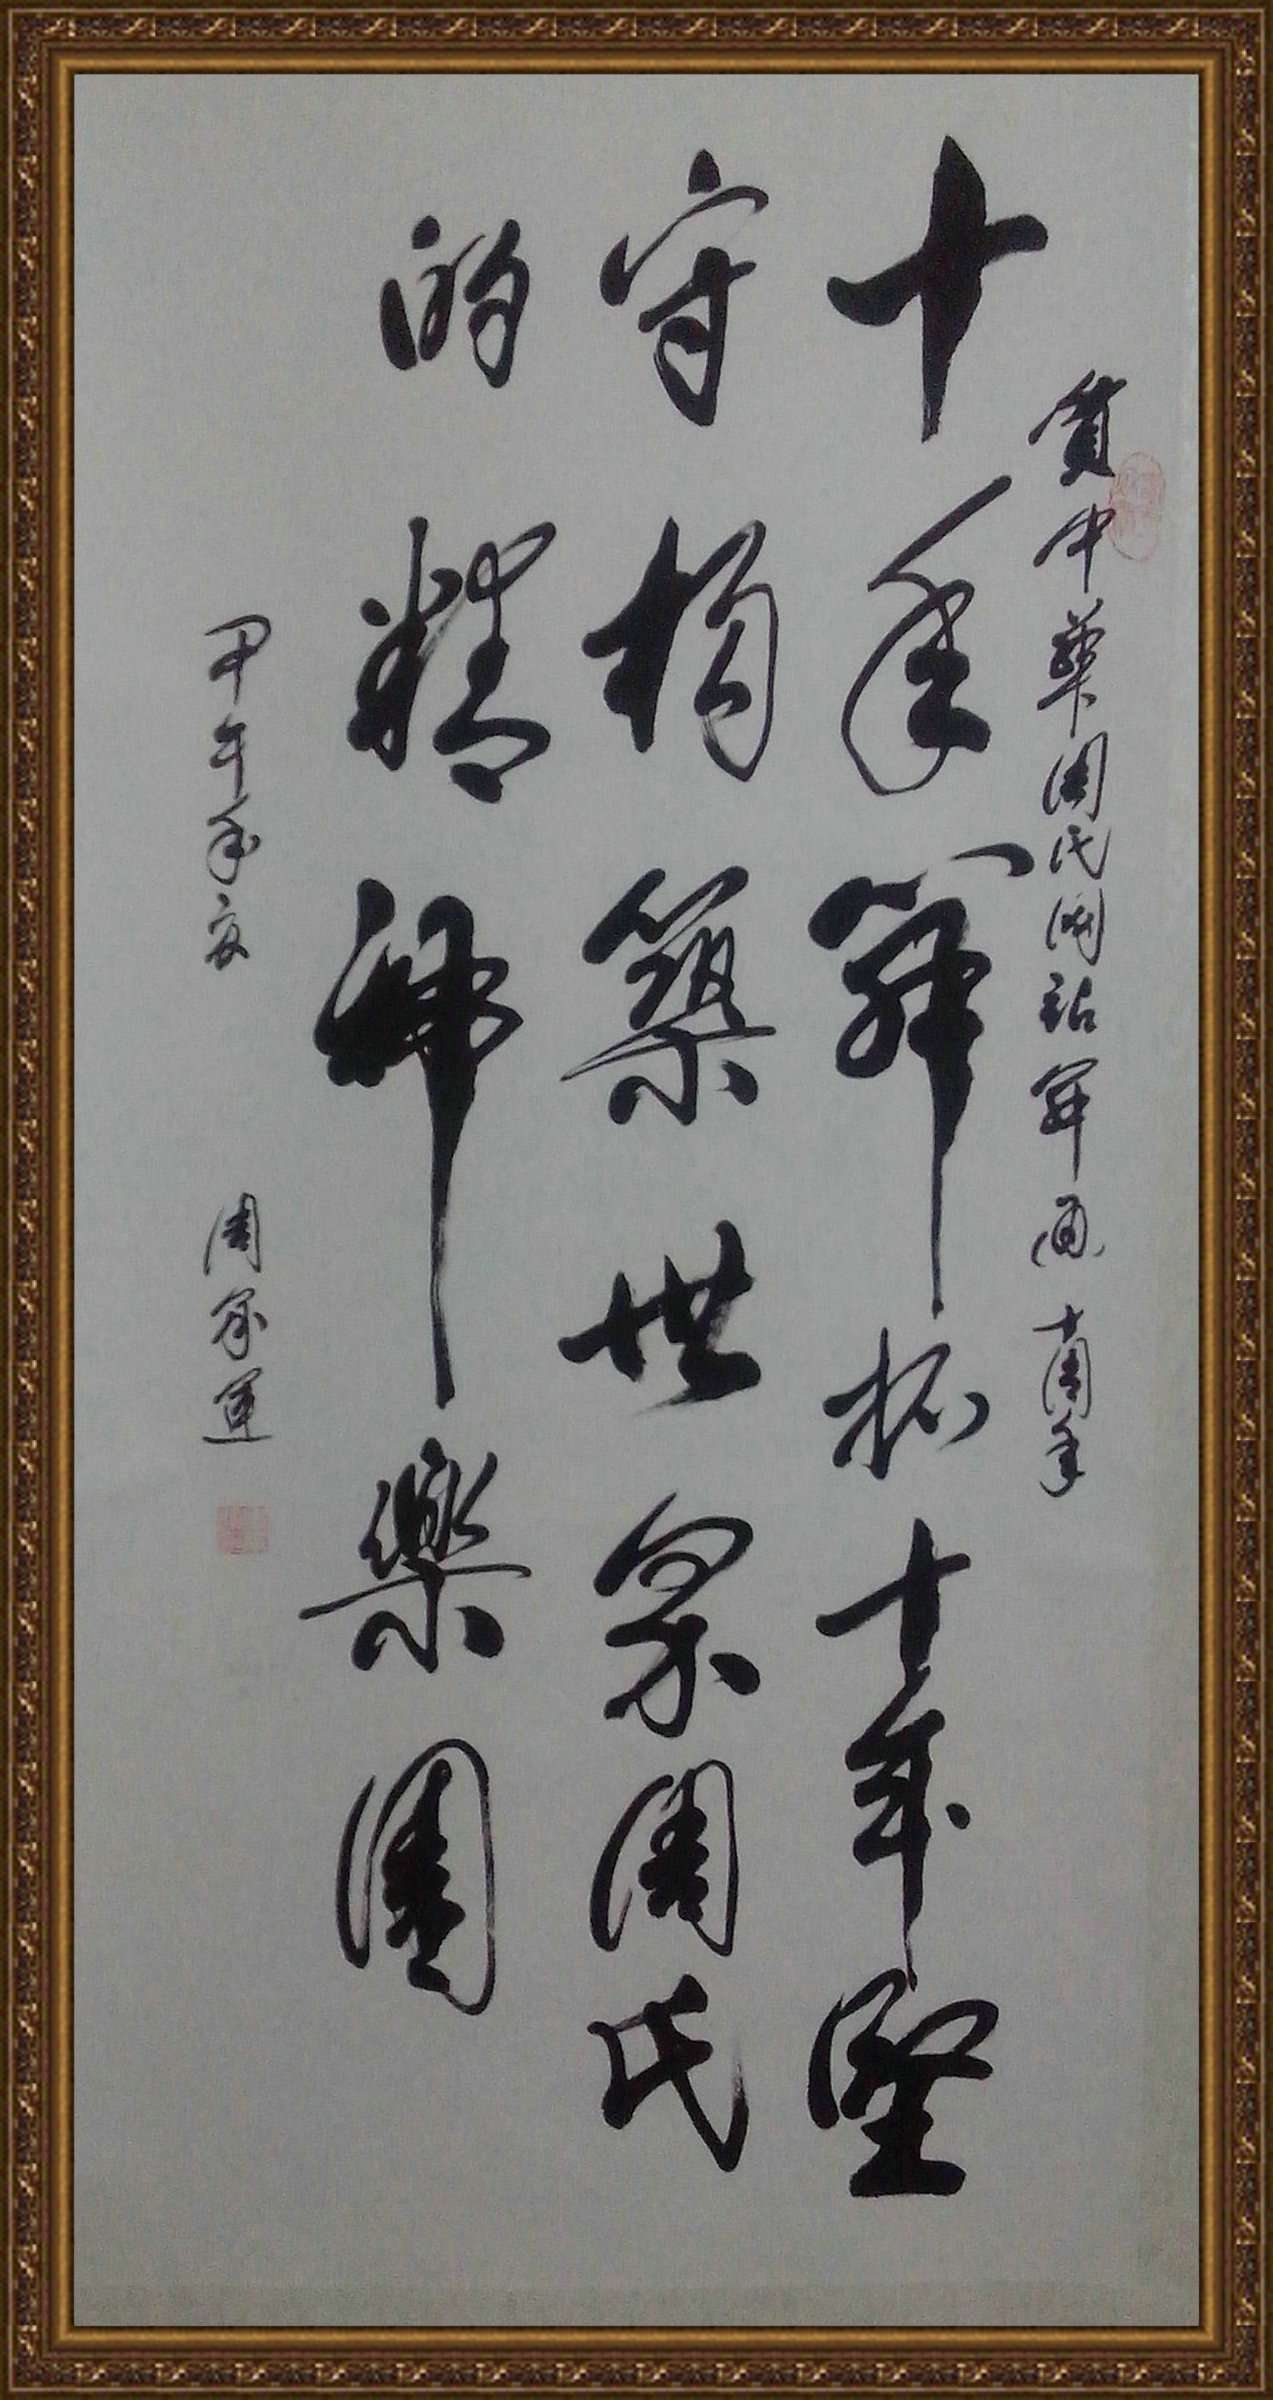 賀中華周氏网站开通十周年
十年开拓十年堅
守構築世界周氏
的精神樂園
甲午年夏 周家運